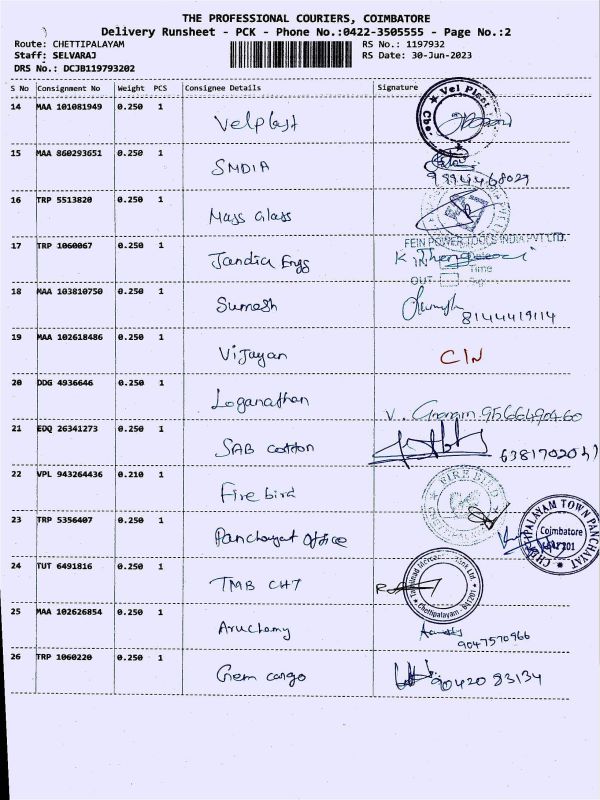 THE PROFESSIONAL COURIERS, COIMBATORE
Delivery Runsheet - PCK - Phone No.:0422-3505555 - Page No.:2
Route: CHETTIPALAYAM RS No.: 1197932
Staff: SELVARAJ RS Date: 30-Jun-2023
DRS No.: DCJB119793202
S No Consignment No Weight PCS Consignee Details Signature
14 MAA 101081949 0.250 1 Velplast
Vel Plast
15 MAA 860293651 0.250 1 SMDIA
9894468029
16 TRP 5513820 0.250 1 Mass Glass
FEIN POWER TOOLS INDIA PVT LTD.
17 TRP 1060067 0.250 1 Jandia Engg K.
IN Time
OUT
18 MAA 103810750 0.250 1 Sumesh 8144419114
19 MAA 102618486 0.250 1 Vijayan CIN
20 DDG 4936646 0.250 1 Loganathan V. Gnanam 9566490460
21 EDQ 26341273 0.250 1 SAB cotton
22 VPL 943264436 0.210 1 Fire bird
FIRE BIRD
23 TRP 5356407 0.250 1 Panchayat office
CHETTIPALAYAM TOWN PANCHAYAT
Coimbatore
24 TUT 6491816 0.250 1 TMB CHT
Tamilnad Mercantile Bank Ltd
Chettipalayam - 641201
25 MAA 102626854 0.250 1 Aruchamy
9047570966
26 TRP 1060220 0.250 1 Gem cargo 9042083134